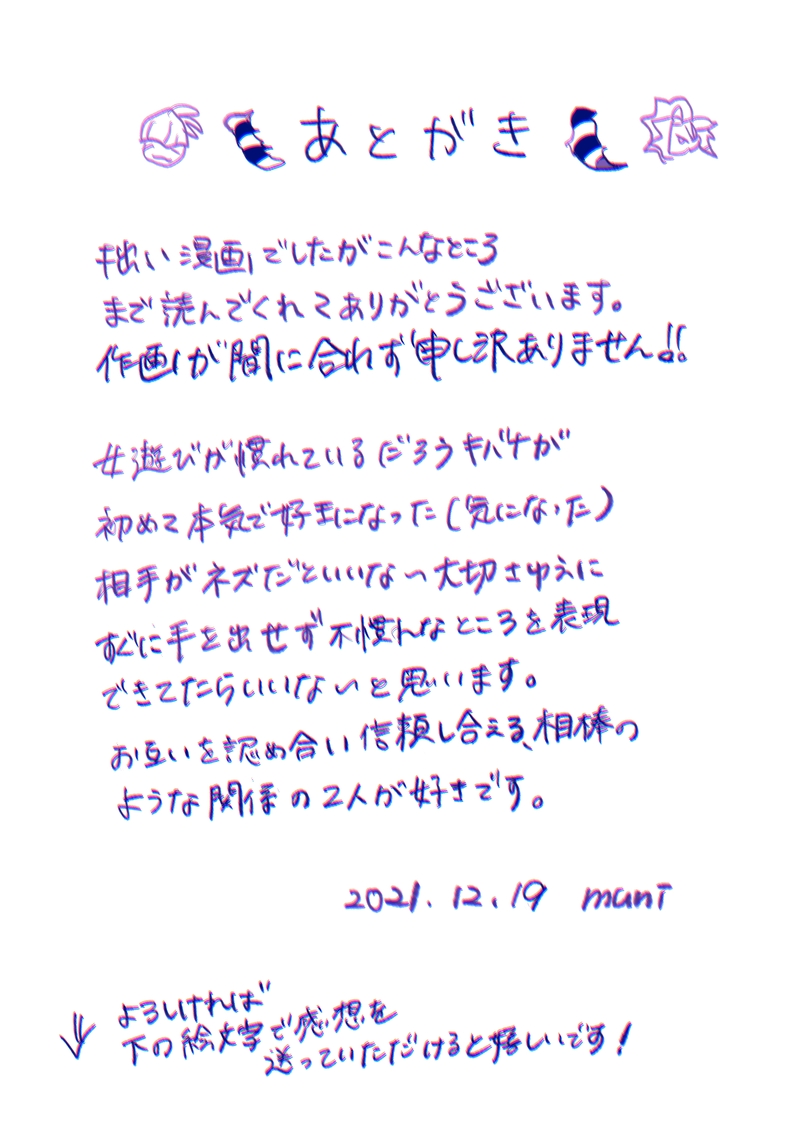 あとがき
拙い漫画でしたがこんなところ
まで読んでくれてありがとうございます。
作画が間に合わず申し訳ありません!!
女遊びが慣れているだろうキバナが
初めて本気で好きになった(気になった)
相手がネズだといいな〜大切さゆえに
すぐに手を出せず不慣れなところを表現
できてたらいいな〜と思います。
お互いを認め合い信頼し合える、相棒の
ような関係の2人が好きです。
2021.12.19 muni
↓ よろしければ
下の絵文字で感想を
送っていただけると嬉しいです!